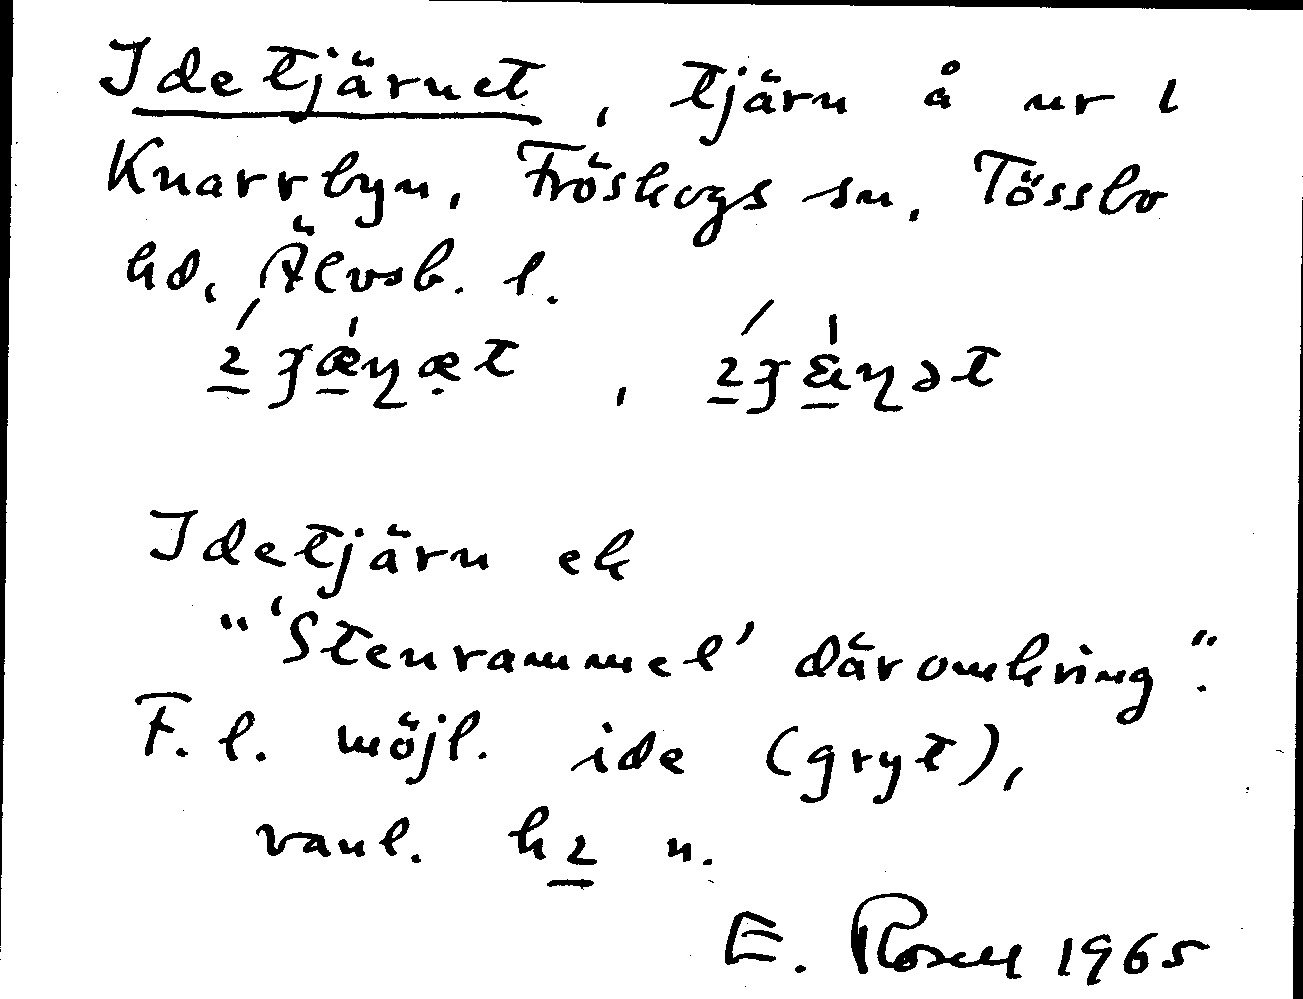 Idetjärnet, tjärn å nr 1
Knarrbyn, Fröskogs sn, Tössbo
hd, Älvsb. l.
Idetjärn ek
"'Stenrammel' däromkring".
F. l. möjl. ide (gryt),
vanl. n.
E. Rosell 1965